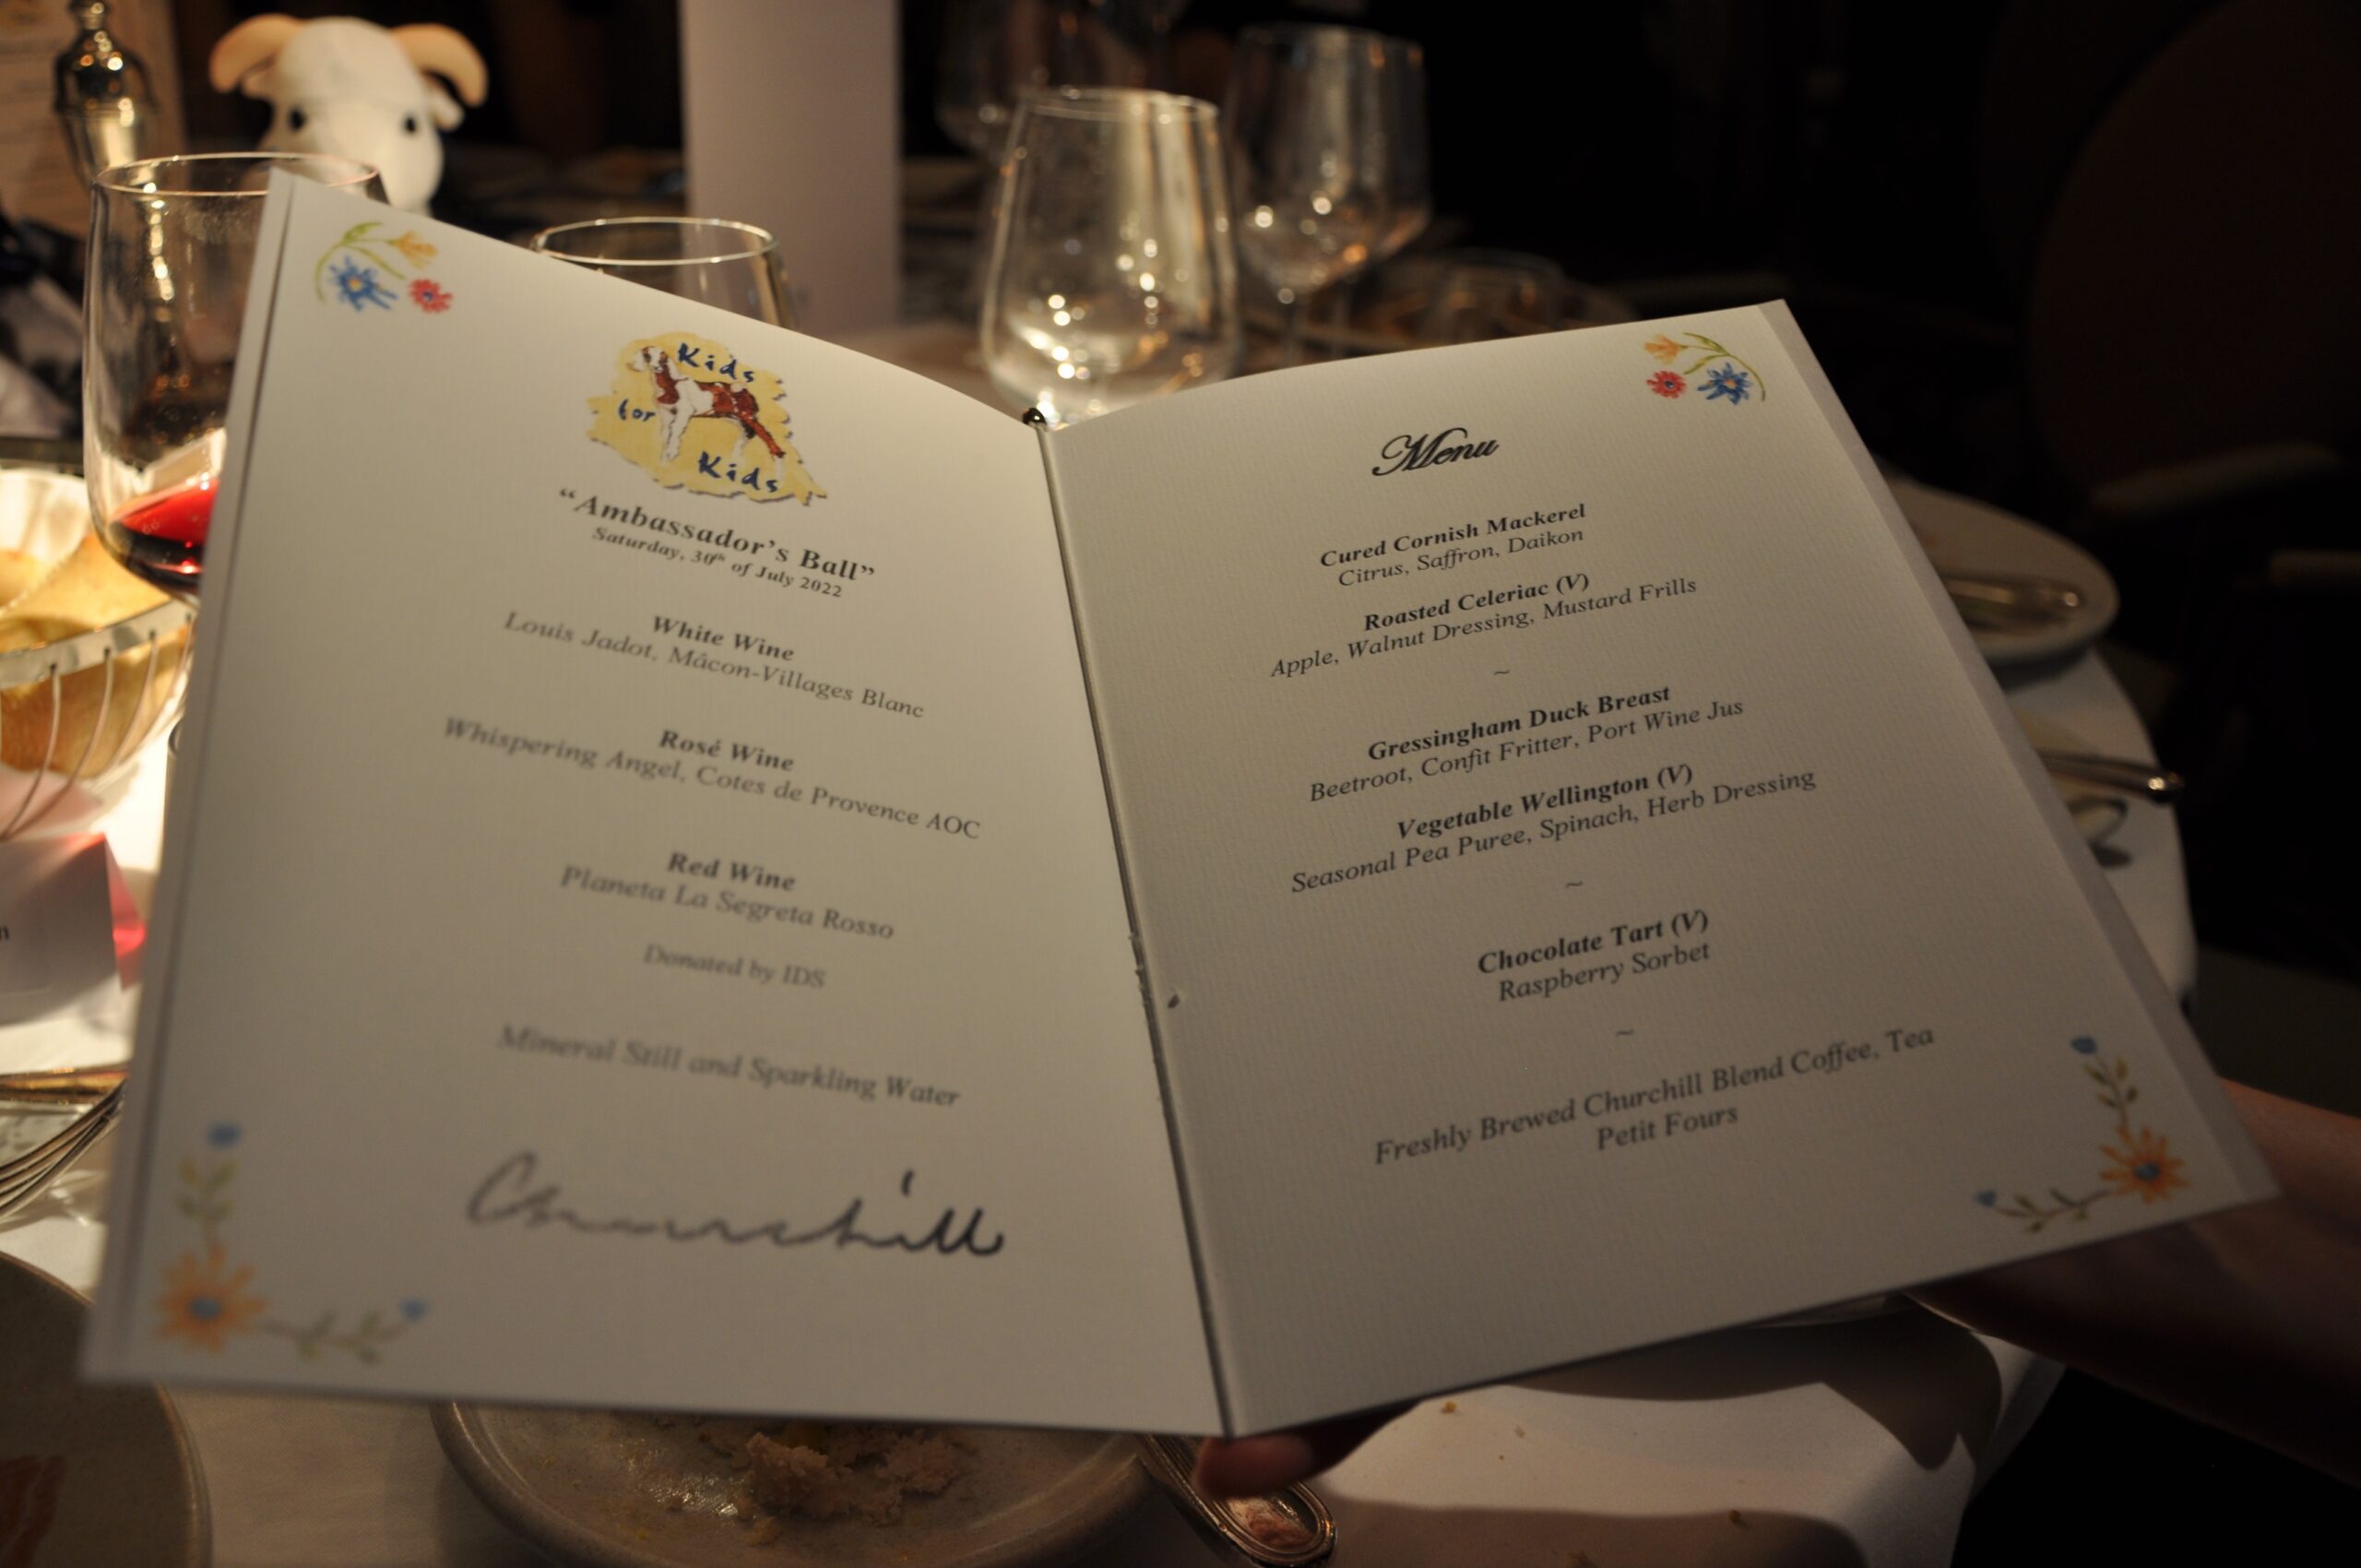 Kids
for
Kids
“Ambassador’s Ball”
Saturday, 30th of July 2022
White Wine
Louis Jadot, Mâcon-Villages Blanc
Rosé Wine
Whispering Angel, Cotes de Provence AOC
Red Wine
Planeta La Segreta Rosso
Donated by IDS
Mineral Still and Sparkling Water
Churchill
Menu
Cured Cornish Mackerel
Citrus, Saffron, Daikon
Roasted Celeriac (V)
Apple, Walnut Dressing, Mustard Frills
~
Gressingham Duck Breast
Beetroot, Confit Fritter, Port Wine Jus
Vegetable Wellington (V)
Seasonal Pea Puree, Spinach, Herb Dressing
~
Chocolate Tart (V)
Raspberry Sorbet
~
Freshly Brewed Churchill Blend Coffee, Tea
Petit Fours